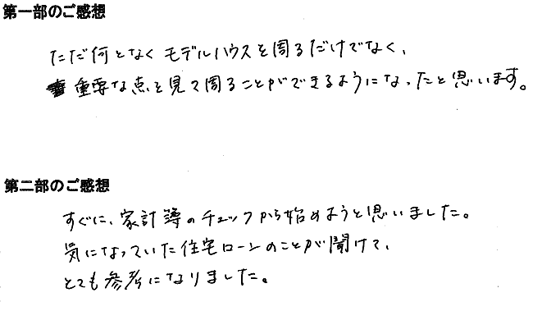 第一部のご感想
ただ何となくモデルハウスを周るだけでなく、
重要な点を見て周ることができるようになったと思います。
第二部のご感想
すぐに、家計簿のチェックから始めようと思いました。
気になっていた住宅ローンのことが聞けて、
とても参考になりました。